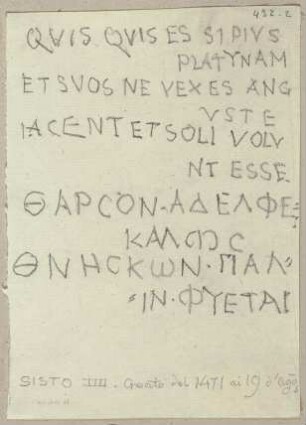 492.2
QVIS QVIS ES SI PIVS
PLATYNAM
ET SVOS NE VEXES ANG
VSTE
IACENT ET SOLI VOLV
NT ESSE.
ΘΑΡCΟΝ·ΑΔΕΛΦΕ
ΚΑΛѠC
ΘΝΗCΚΩΝ·ΠΑΛ
ΙΝ·ΦΥΕΤΑΙ
SISTO IIII. Creato del 1471 ai 19 d'Ag